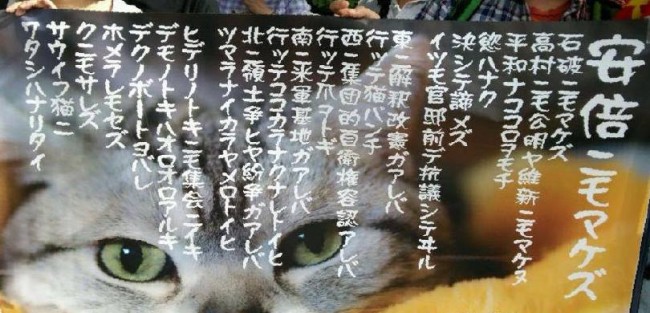 安倍ニモマケズ
石破ニモマケズ
高村ニモ公明ヤ維新ニモマケヌ
平和ナココロヲモチ
慾ハナク
決シテ諦メズ
イツモ官邸前デ抗議シテヰル
東ニ解釈改憲ガアレバ
行ッテ猫パンチ
西ニ集団的自衛権容認アレバ
行ッテ爪ヲトギ
南ニ米軍基地ガアレバ
行ッテココカラナクナレトイヒ
北ニ領土争ヒヤ紛争ガアレバ
ツマラナイカラヤメロトイヒ
ヒデリノトキニモ集会ニアルキ
デモノトキハオロオロアルキ
デクノボートヨバレ
ホメラレモセズ
クニモサレズ
サウイフ猫ニ
ワタシハナリタイ